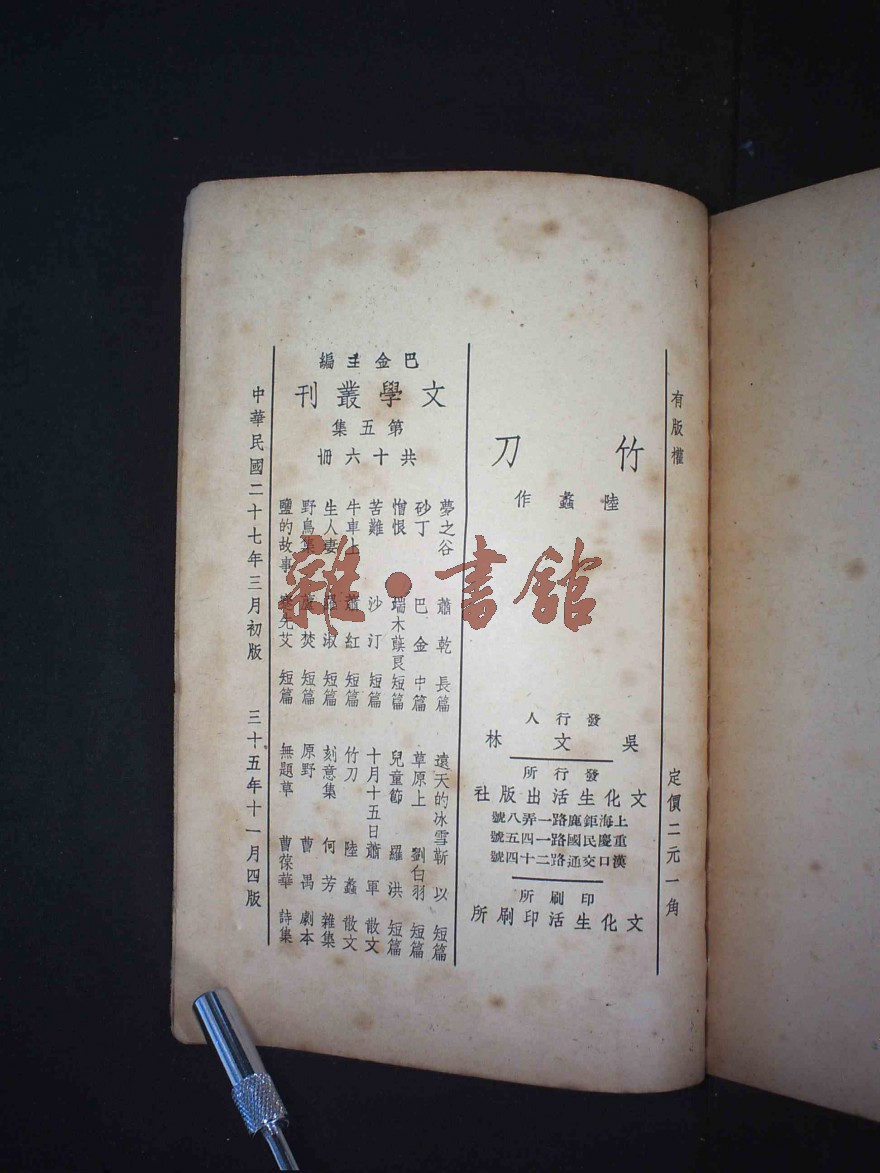 有版權
定價二元一角
竹刀
陸蠡作
發行人
吳文林
發行所
文化生活出版社
上海鉅鹿路一弄八號
重慶民國路一四五號
漢口交通路二十四號
印刷所
文化生活印刷所
巴金主編
文學叢刊
第五集
共十六冊
夢之谷 蕭乾 長篇
砂丁 巴金 中篇
憎恨 端木蕻良 短篇
苦難 沙汀 短篇
牛車上 蕭紅 短篇
生人妻 羅淑 短篇
野鳥集 蘆焚 短篇
鹽的故事 蹇先艾 短篇
遠天的冰雪 靳以 短篇
草原上 劉白羽 短篇
兒童節 羅洪 短篇
十月十五日 蕭軍 散文
竹刀 陸蠡 散文
刻意集 何芳 雜集
原野 曹禺 劇本
無題草 曹葆華 詩集
中華民國二十七年三月初版
三十五年十一月四版
雜·書館